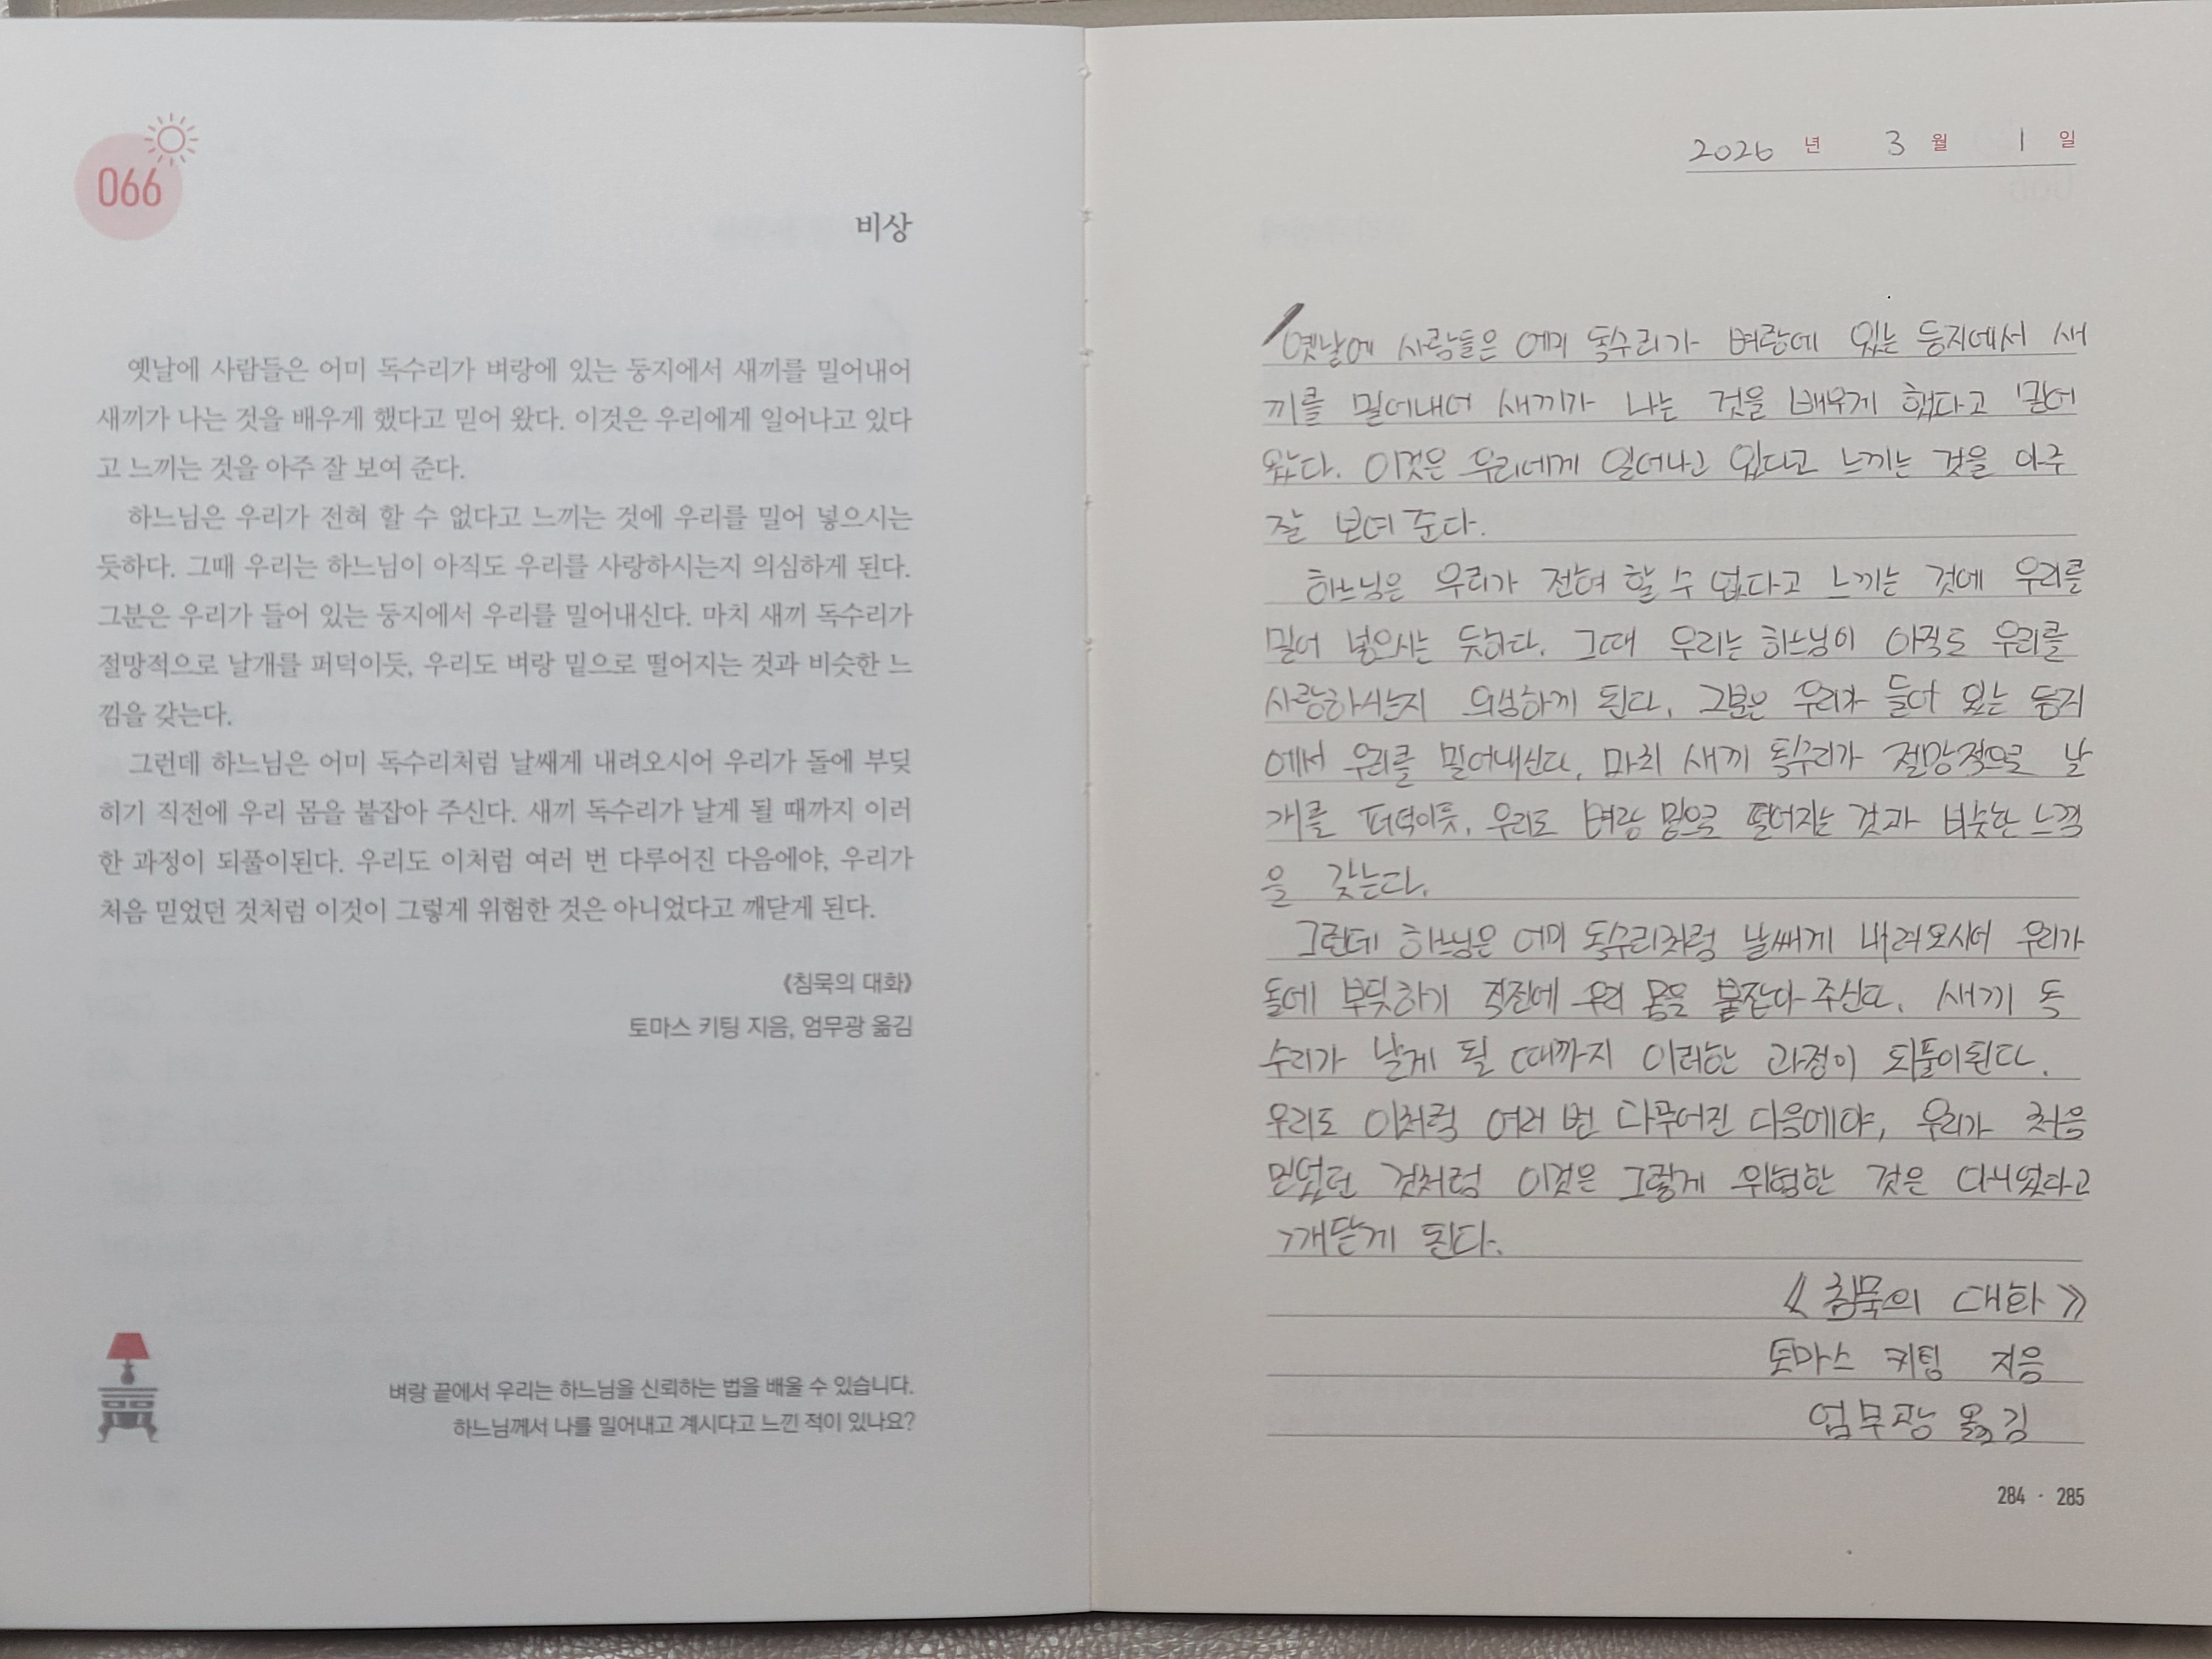 066
비상
옛날에 사람들은 어미 독수리가 벼랑에 있는 둥지에서 새끼를 밀어내어
새끼가 나는 것을 배우게 했다고 믿어 왔다. 이것은 우리에게 일어나고 있다
고 느끼는 것을 아주 잘 보여 준다.
하느님은 우리가 전혀 할 수 없다고 느끼는 것에 우리를 밀어 넣으시는
듯하다. 그때 우리는 하느님이 아직도 우리를 사랑하시는지 의심하게 된다.
그분은 우리가 들어 있는 둥지에서 우리를 밀어내신다. 마치 새끼 독수리가
절망적으로 날개를 퍼덕이듯, 우리도 벼랑 밑으로 떨어지는 것과 비슷한 느
낌을 갖는다.
그런데 하느님은 어미 독수리처럼 날쌔게 내려오시어 우리가 돌에 부딪
히기 직전에 우리 몸을 붙잡아 주신다. 새끼 독수리가 날게 될 때까지 이러
한 과정이 되풀이된다. 우리도 이처럼 여러 번 다루어진 다음에야, 우리가
처음 믿었던 것처럼 이것이 그렇게 위험한 것은 아니었다고 깨닫게 된다.
《침묵의 대화》
토마스 키팅 지음, 엄무광 옮김
벼랑 끝에서 우리는 하느님을 신뢰하는 법을 배울 수 있습니다.
하느님께서 나를 밀어내고 계시다고 느낀 적이 있나요?
2026 년 3 월 1 일
옛날에 사람들은 어미 독수리가 벼랑에 있는 둥지에서 새
끼를 밀어내어 새끼가 나는 것을 배우게 했다고 믿어
왔다. 이것은 우리에게 일어나고 있다고 느끼는 것을 아주
잘 보여 준다.
하느님은 우리가 전혀 할 수 없다고 느끼는 것에 우리를
밀어 넣으시는 듯하다. 그때 우리는 하느님이 아직도 우리를
사랑하시는지 의심하게 된다. 그분은 우리가 들어 있는 둥지
에서 우리를 밀어내신다. 마치 새끼 독수리가 절망적으로 날
개를 퍼덕이듯, 우리도 벼랑 밑으로 떨어지는 것과 비슷한 느낌
을 갖는다.
그런데 하느님은 어미 독수리처럼 날쌔게 내려오시어 우리가
돌에 부딪하기 직전에 우리 몸을 붙잡아 주신다. 새끼 독
수리가 날게 될 때까지 이러한 과정이 되풀이된다.
우리도 이처럼 여러 번 다루어진 다음에야, 우리가 처음
믿었던 것처럼 이것은 그렇게 위험한 것은 아니었다고
깨닫게 된다.
《침묵의 대화》
토마스 키팅 지음
엄무광 옮김
284 · 285